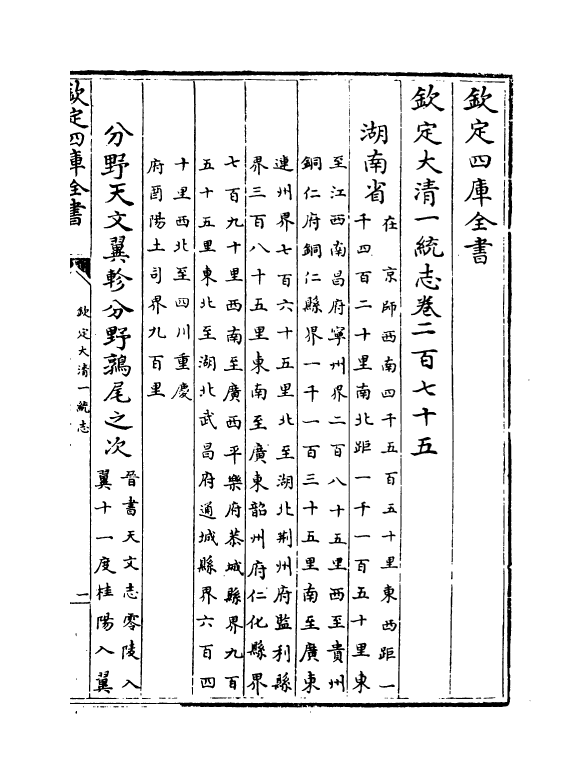 欽定四庫全書
欽定大清一統志卷二百七十五
湖南省
在京師西南四千五百五十里東西距一
千四百二十里南北距一千一百五十里東
至江西南昌府寧州界二百八十五里西至貴州
銅仁府銅仁縣界一千一百三十五里南至廣東
連州界七百六十五里北至湖北荆州府監利縣
界三百八十五里東南至廣東韶州府仁化縣界
七百九十里西南至廣西平樂府恭城縣界九百
五十五里東北至湖北武昌府通城縣界六百四
十里西北至四川重慶
府酉陽土司界九百里
分野天文翼軫分野鶉尾之次
晉書天文志零陵入
翼十一度桂陽入翼
欽定四庫全書
欽定大清一統志
一